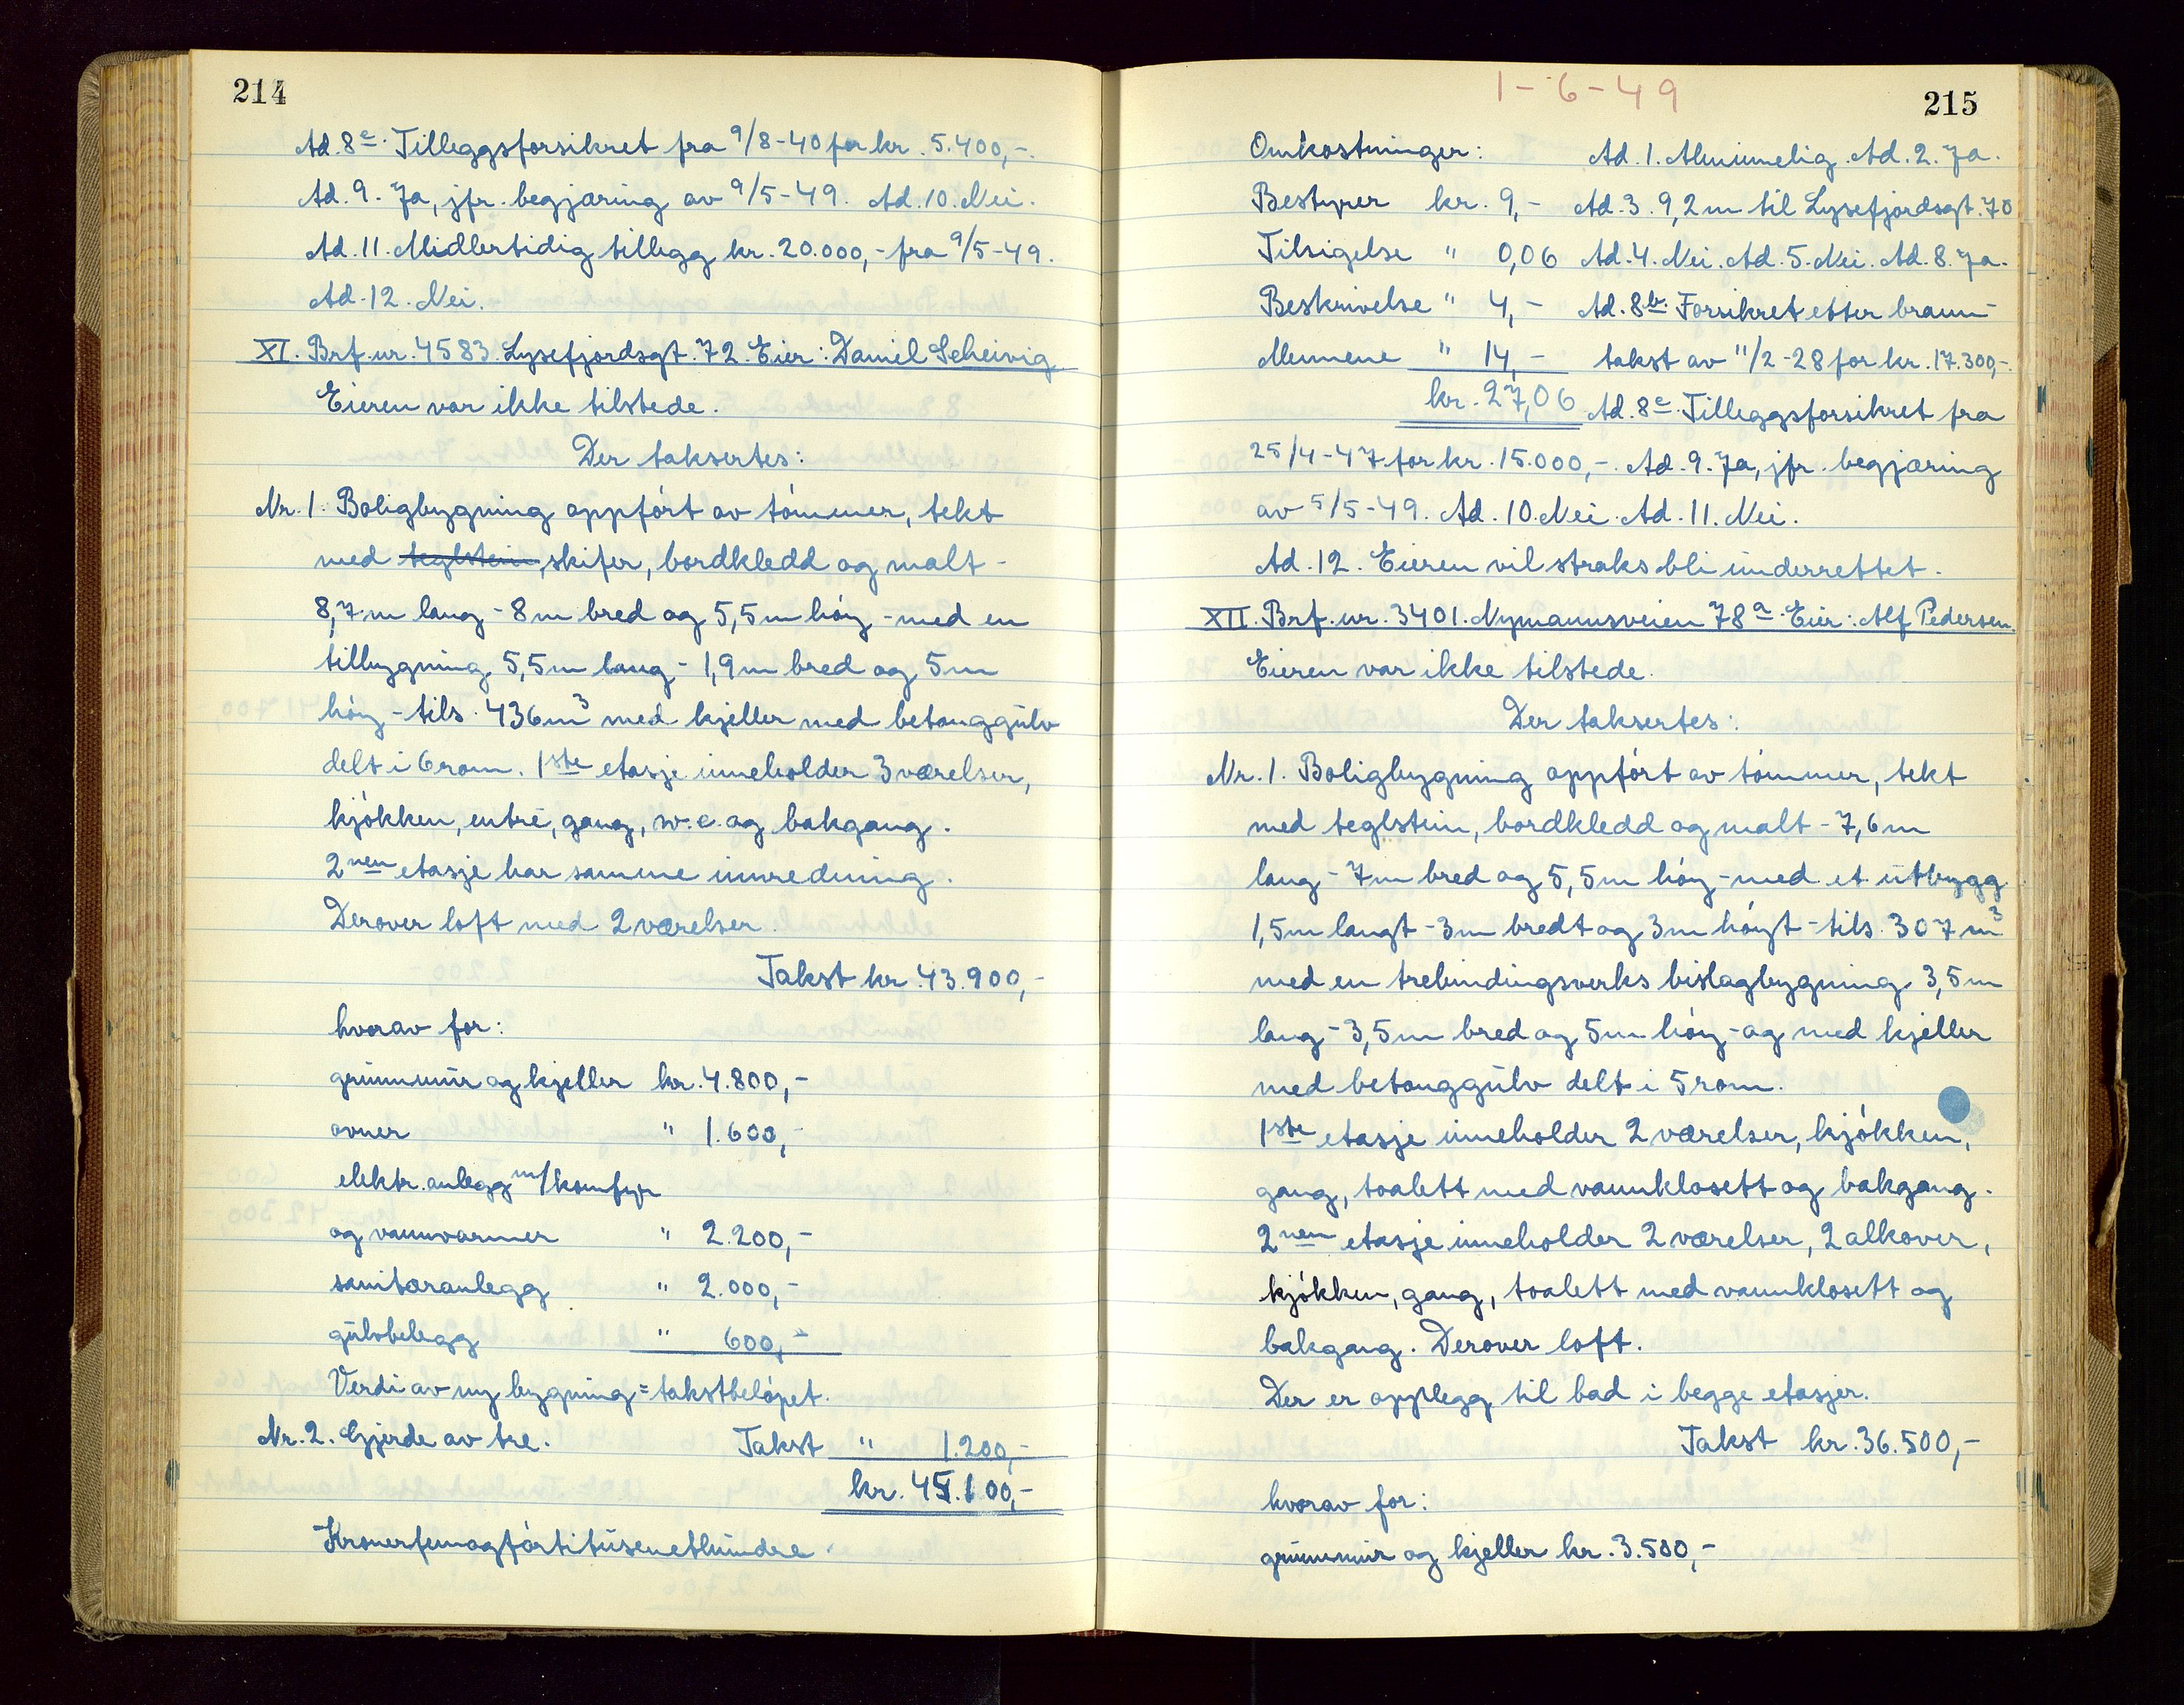 214
Ad. 8c. Tilleggsforsikret fra 9/8-40 for kr. 5.400,-.
Ad. 9. Ja, jfr. begjæring av 9/5-49. Ad. 10. Nei.
Ad. 11. Midlertidig tillegg kr. 20.000,- fra 9/5-49.
Ad. 12. Nei.
XI. Brf. nr. 4583. Lysefjordsgt. 72. Eier: Daniel Scheivig
Eieren var ikke tilstede.
Der taksertes:
Nr. 1. Boligbygning oppført av tømmer, tekt
med teglstein, skifer, bordkledd og malt -
8,7 m lang - 8 m bred og 5,5 m høy - med en
tilbygning 5,5 m lang - 1,9 m bred og 5 m
høy - tils. 436 m³ med kjeller med betonggulv
delt i 6 rom. 1ste etasje inneholder 3 værelser,
kjøkken, entré, gang, w.c. og bakgang.
2nen etasje har samme innredning.
Derover loft med 2 værelser.
Takst kr. 43.900,-
hvorav for:
grunnmur og kjeller kr. 4.800,-
ovner " 1.600,-
elektr. anlegg m/komfyr
og vannvarmer " 2.200,-
sanitæranlegg " 2.000,-
gulvbelegg " 600,-
Verdi av ny bygning = takstbeløpet.
Nr. 2. Gjerde av tre. Takst " 1.200,-
kr. 45.100,-
Kronerfemogførtitusenethundre.
1-6-49
215
Omkostninger: Ad. 1. Alminnelig. Ad. 2. Ja.
Bestyrer kr. 9,- Ad. 3. 9,2 m til Lysefjordsgt. 70
Tilsigelse " 0,06 Ad. 4. Nei. Ad. 5. Nei. Ad. 8. Ja.
Beskrivelse " 4,- Ad. 8b. Forsikret etter brann-
Mennene " 14,- takst av 11/2-28 for kr. 17.300,-.
kr. 27,06 Ad. 8c. Tilleggsforsikret fra
25/4-47 for kr. 15.000,-. Ad. 9. Ja, jfr. begjæring
av 5/5-49. Ad. 10. Nei. Ad. 11. Nei.
Ad. 12. Eieren vil straks bli underrettet.
XII. Brf. nr. 3401. Nymannsveien 78a. Eier: Alf Pedersen.
Eieren var ikke tilstede.
Der taksertes:
Nr. 1. Boligbygning oppført av tømmer, tekt
med teglstein, bordkledd og malt - 7,6 m
lang - 7 m bred og 5,5 m høy - med et utbygg
1,5 m langt - 3 m bredt og 3 m høyt - tils. 307 m³
med en trebindingsverks bislagbygning 3,5 m
lang - 3,5 m bred og 5 m høy - og med kjeller
med betonggulv delt i 5 rom.
1ste etasje inneholder 2 værelser, kjøkken,
gang, toalett med vannklosett og bakgang.
2nen etasje inneholder 2 værelser, 2 alkover,
kjøkken, gang, toalett med vannklosett og
bakgang. Derover loft.
Der er opplegg til bad i begge etasjer.
Takst kr. 36.500,-
hvorav for:
grunnmur og kjeller kr. 3.500,-